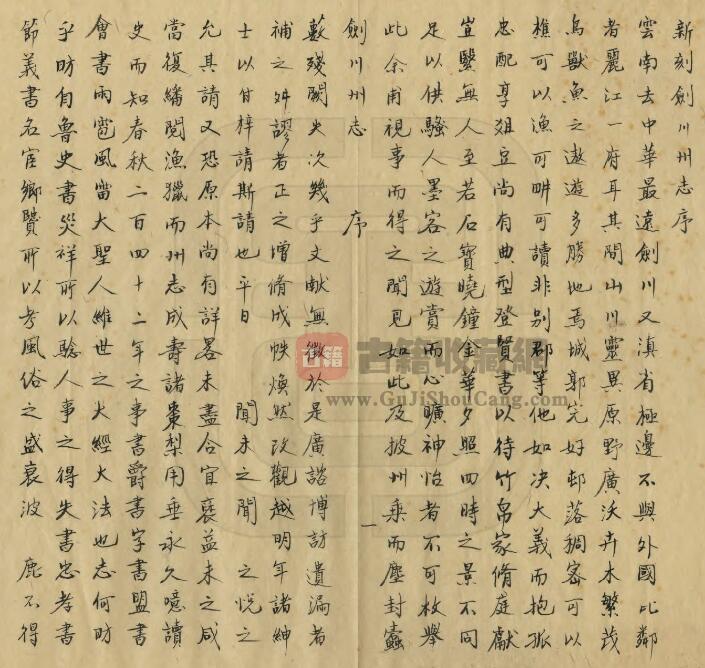 新刻劍川州志序
雲南去中華最遠劍川又滇省極邊不與外國比鄰
者麗江一府耳其間山川靈異原野廣沃卉木繁茂
鳥獸魚之遨遊多勝地焉城郭完好邨落稠密可以
樵可以漁可畊可讀非別郡等他如決大義而抱孤
忠配享俎豆尚有典型登賢書以待竹帛家脩庭獻
豈緊無人至若石寶曉鐘金華夕照四時之景不同
足以供騷人墨客之遊賞而心曠神怡者不可枚舉
此余甫視事而得之聞見如此及披州乘而塵封蠹
劍川州志 序
一
蔌殘闕失次幾乎文献無徵於是廣諮博訪遺漏者
補之舛謬者正之增脩成帙煥然改觀越明年諸紳
士以付梓請斯請也平日 聞未之聞 之悦之
允其請又恐原本尚有詳畧未盡合宜裒益未之咸
當復繙閱漁獵而州志成壽諸棗梨用垂永久噫讀
史而知春秋二百四十二年之事書爵書字書盟書
會書雨雹風雷大聖人維世之大經大法也志何昉
乎昉自魯史書災祥所以騐人事之得失書忠孝書
節義書名宦鄉賢所以考風俗之盛衰波 鹿不得
古籍
古籍收藏網
www.GuJiShouCang.com